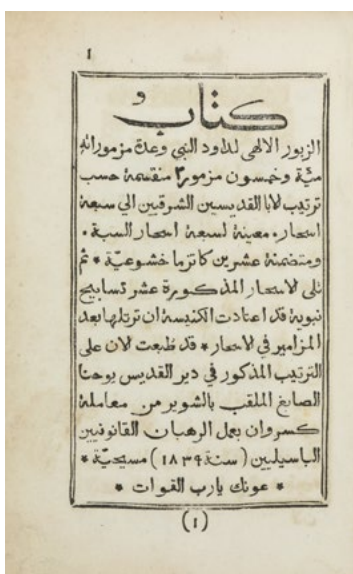 1
كتاب
الزبور الالهي لداود النبي وعدة مزموراته
مئة وخمسون مزمورا منقسمة حسب
ترتيب الابا القديسين الشرقيين الي سبعة
اسحار. معينة لسبعة اسحار السبة.
ومتضمنة عشرين كاتزما خشوعيّة * ثم
تلى الاسحار المذكورة عشر تسابيح
نبوية قد اعتادت الكنيسة ان ترتلها بعد
المزامير في الاسحار * قد طبعت الان على
الترتيب المذكور في دير القديس يوحنا
الصابغ الملقب بالشوير من معاملة
كسروان بعمل الرهبان القانونيين
الباسيليين (سنة ١٨٣٤) مسيحيّة *
* عونك يارب القوات *
(1)